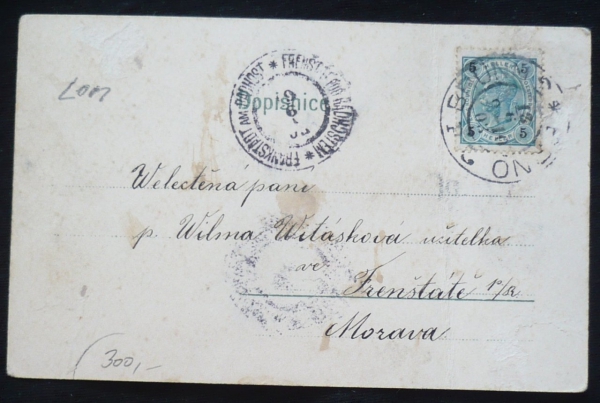 Lom
FRANKSTADT AM RADHOST * FRENŠTÁT POD RADHOŠTĚM *
Dopisnice
5 5
5 5
BRÜNN
BRNO
Welectěná pani
p. Wilma Witásková učitelka
ve
Frenštátě p/R
Morava
300,-